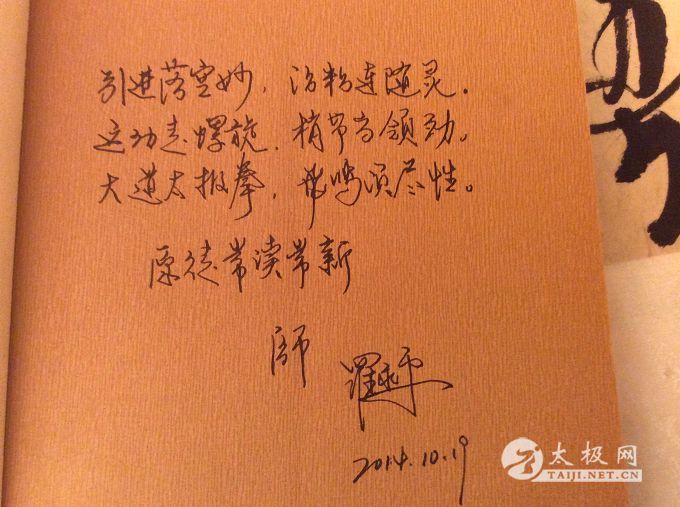 引进落空妙，沾粘连随灵．
运动走螺旋，梢节为领劲。
大道太极拳，共鸣须尽性。
原徒常读常新
师
2014.10.19
太极网
TAIJI.NET.CN